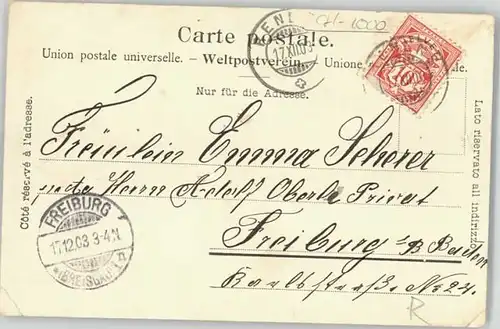 CH-1000
Carte postale.
Union postale universelle. – Weltpostverein. – Unione
Nur für die Adresse.
Côté réservé à l'adresse.
Lato riservato all indirizzo
17.XII.03
Fräulein Emma Scherer
Herrn Adolf Oberle Privat
Freiburg i/B Baden
Karlstraße No 24.
FREIBURG
17.12.03 3-4N
(BREISGAU)
R